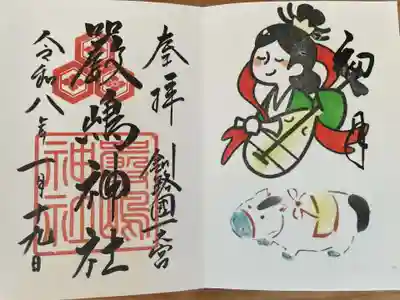 奉拝
釧路國一之宮
嚴嶋神社
嚴嶋神社
令和八年
一月十九日